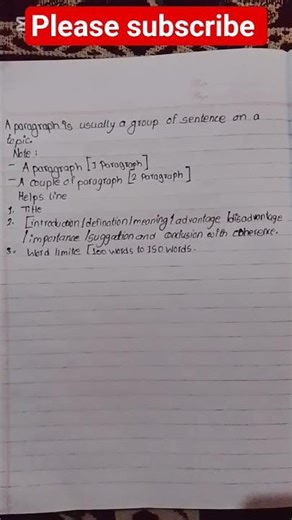 Please subscribe
A paragraph is usually a group of sentence on a
topic.
Note:
- A paragraph [1 Paragraph]
- A couple of paragraph [2 Paragraph]
Helps line
1. Title
2. [introduction/defination/meaning/advantage/disadvantage
/importance/suggation and conclusion with coherence.
3. Word limite [100 words to 150 words.